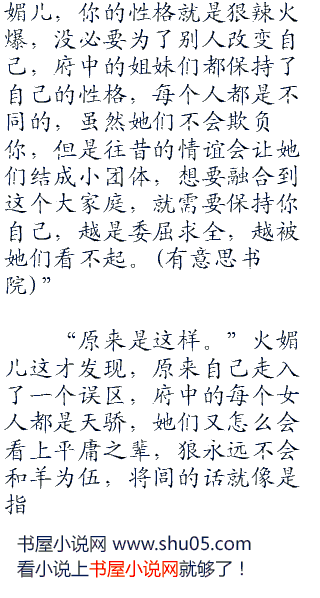 媚儿，你的性格就是狠辣火
爆，没必要为了别人改变自
己，府中的姐妹们都保持了
自己的性格，每个人都是不
同的，虽然她们不会欺负
你，但是往昔的情谊会让她
们结成小团体，想要融合到
这个大家庭，就需要保持你
自己，越是委屈求全，越被
她们看不起。(有意思书
院)”
“原来是这样。”火媚
儿这才发现，原来自己走入
了一个误区，府中的每个女
人都是天骄，她们又怎么会
看上平庸之辈，狼永远不会
和羊为伍，将闾的话就像是
指
书屋小说网 www.shu05.com
看小说上书屋小说网就够了！